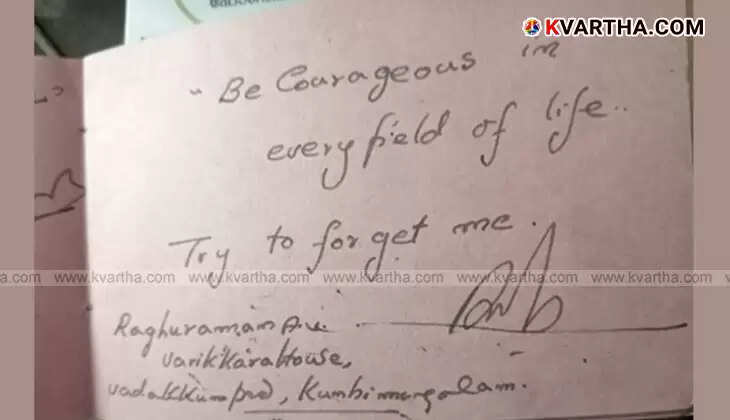 KVARTHA.COM
"Be Courageous in
every field of life..
Try to forget me.
www.kvartha.com www.kvartha.com www.kvartha.com www.kvartha.com
Raghuraman
Varikkara House,
Kunhimangalam.